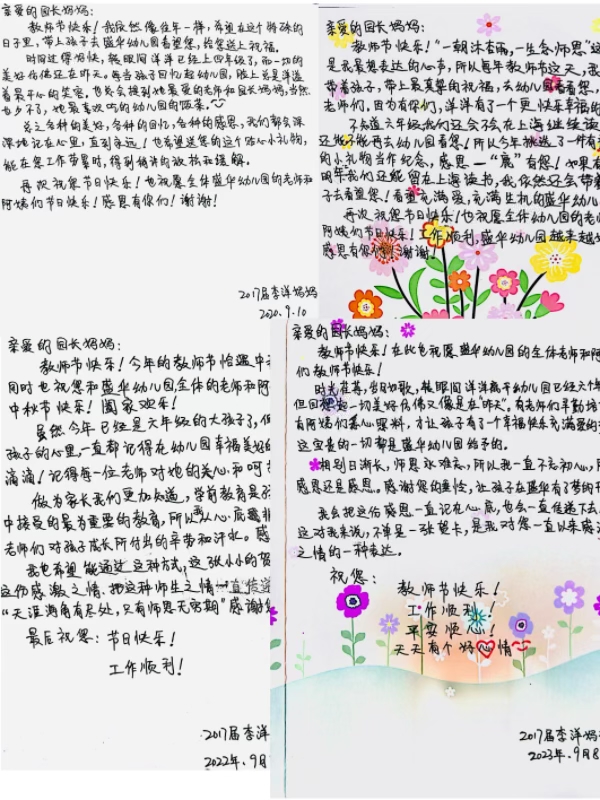 亲爱的园长妈妈:
教师节快乐!我依然像往年一样,希望在这个特殊的
日子里,带上孩子去盛华幼儿园看望您,给您送上祝福。
时间过得好快,转眼间洋洋已经上四年级了,而一切的
美好仿佛还在昨天。每当孩子回忆起幼儿园,脸上总是洋溢
着最开心的笑容,也总会提到她最爱的老师和园长妈妈,当然
也少不了,她最喜欢吃的幼儿园的饭菜。
总之各种的美好,各种的回忆,各种的感恩,我们都会深
深地记在心里,直到永远!也希望送您的这个贴心小礼物,
能在您工作劳累时,得到精神的放松和缓解。
再次祝您节日快乐!也祝愿全体盛华幼儿园的老师和
阿姨们节日快乐!感恩有你们!谢谢!
2017届李洋妈妈
2020.9.10
亲爱的园长妈妈:
教师节快乐!"一朝沐杏雨,一生念师恩"这
是我最想表达的心声,所以每年教师节这天,我
带着孩子,带上最真挚的祝福,去幼儿园看看您,
老师们,因为有你们,洋洋有了一个更快乐幸福的
不知道六年级我们还会不会在上海继续读
还能不能再去幼儿园看您!所以今年挑选了一件有
的小礼物当作纪念,感恩一"晨"有您!如果有
明年我们还能留在上海读书,我依然还会带着
子去看望您!看望充满爱,充满生机的盛华幼儿
再次祝您节日快乐!也祝愿全体幼儿园的老师
阿姨们节日快乐!工作顺利,盛华幼儿园越来越
感恩有你们!谢谢!
亲爱的园长妈妈:
教师节快乐!今年的教师节恰逢中
同时也祝您和盛华幼儿园全体的老师和阿
中秋节快乐!阖家欢乐!
虽然今年已经是六年级的大孩子了,但
孩子的心里,一直都记得在幼儿园幸福美好的
滴滴!记得每一位老师对她的关心和呵
做为家长我们更加知道,学前教育是孩
中接受的最为重要的教育,所以从心底感
老师们对孩子成长所付出的辛劳和汗水。感
我也希望能通过这种方式,这张小小的贺
这份感激之情、把这种师生之情一直传递
"天涯海角有尽处,只有师恩无穷期"感谢
最后祝您:节日快乐!
工作顺利!
2017届李洋
2022年.9月
亲爱的园长妈妈:
教师节快乐!在此也祝愿盛华幼儿园的全体老师和阿
们教师节快乐!
时光荏苒,岁月如歌,转眼间洋洋离开幼儿园已经六年
但回想起一切美好仿佛又像是在"昨天"。有老师们辛勤培
有阿姨们悉心照料,才让孩子有了个幸福快乐充满爱的
这宝贵的一切都是盛华幼儿园给予的。
相别日渐长,师恩永难忘,所以我一直不忘初心,
感恩还是感恩。感谢您的重恰,让孩子在盛华有了梦的
我会把这份感恩一直记在心底,也会一直传递下去
这对我来说,不单是一张贺卡,是我对您一直以来感激
之情的一种表达。
祝您:
教师节快乐!
工作顺利!
平安顺心!
天天有个好心情
2017届李洋妈
2023年.9月8